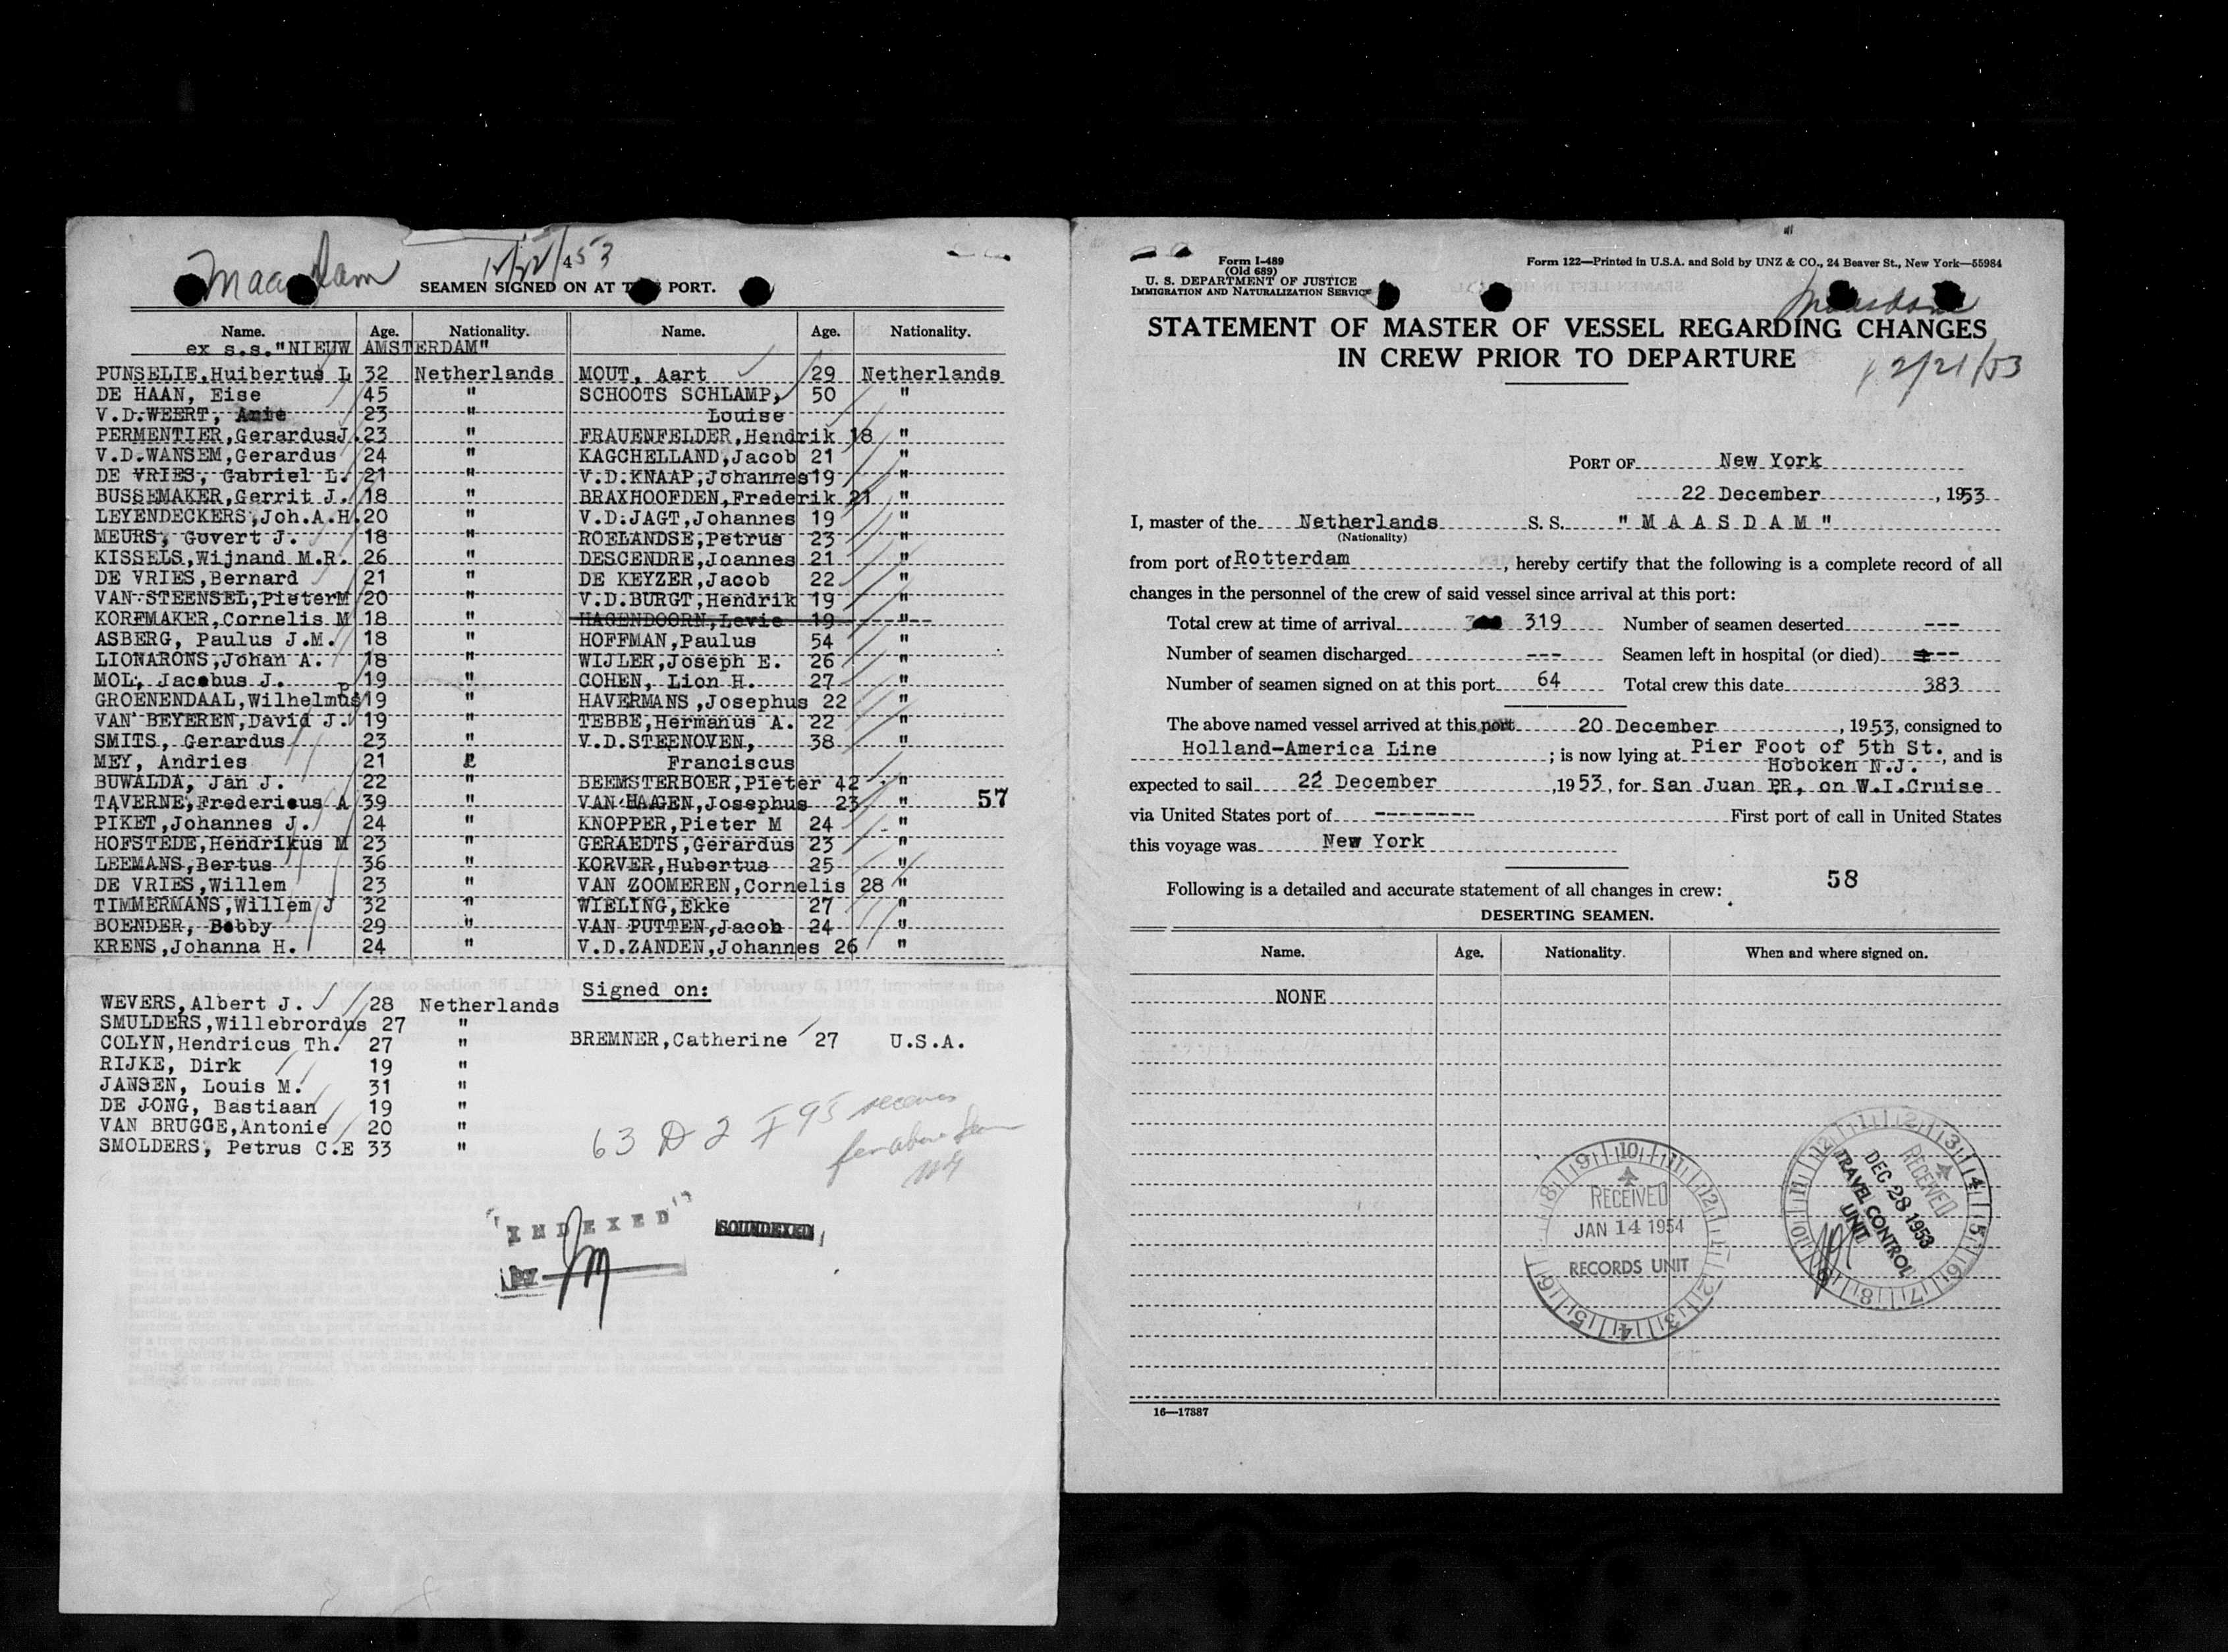 Maasdam 12/22/53
4
SEAMEN SIGNED ON AT THIS PORT.
Name. Age. Nationality. Name. Age. Nationality.
ex s.s."NIEUW AMSTERDAM"
PUNSELIE,Huibertus L 32 Netherlands MOUT, Aart 29 Netherlands
DE HAAN, Eise 45 " SCHOOTS SCHLAMP, 50 "
V.D.WEERT, Arie 23 " Louise
PERMENTIER,GerardusJ. 23 " FRAUENFELDER,Hendrik 18 "
V.D.WANSEM,Gerardus 24 " KAGCHELLAND,Jacob 21 "
DE VRIES, Gabriel L. 21 " V.D.KNAAP,Johannes 19 "
BUSSEMAKER,Gerrit J. 18 " BRAXHOOFDEN,Frederik 21 "
LEYENDECKERS,Joh.A.H. 20 " V.D.JAGT,Johannes 19 "
MEURS, Govert J. 18 " ROELANDSE,Petrus 23 "
KISSELS,Wijnand M.R. 26 " DESCENDRE,Joannes 21 "
DE VRIES,Bernard 21 " DE KEYZER,Jacob 22 "
VAN STEENSEL,PieterM 20 " V.D.BURGT,Hendrik 19 "
KOREMAKER,Cornelis M 18 " HAGENDOORN,Levie 19 "
ASBERG, Paulus J.M. 18 " HOFFMAN,Paulus 54 "
LIONARONS,Johan A. 18 " WIJLER,Joseph E. 26 "
MOL, Jacobus J. 19 " COHEN, Lion H. 27 "
GROENENDAAL,Wilhelmus P. 19 " HAVERMANS,Josephus 22 "
VAN BEYEREN,David J. 19 " TEBBE,Hermanus A. 22 "
SMITS, Gerardus 23 " V.D.STEENOVEN, 38 "
MEY, Andries 21 " Franciscus
BUWALDA, Jan J. 22 " BEEMSTERBOER,Pieter 42 "
TAVERNE,Fredericus A 39 " VAN HAAGEN,Josephus 23 " 57
PIKET,Johannes J. 24 " KNOPPER,Pieter M 24 "
HOFSTEDE,Hendrikus M 23 " GERAEDTS,Gerardus 23 "
LEEMANS,Bertus 36 " KORVER,Hubertus 25 "
DE VRIES,Willem 23 " VAN ZOOMEREN,Cornelis 28 "
TIMMERMANS,Willem J 32 " WIELING,Ekke 27 "
BOENDER, Bobby 29 " VAN PUTTEN,Jacob 24 "
KRENS,Johanna H. 24 " V.D.ZANDEN,Johannes 26 "
Signed on:
WEVERS,Albert J. 28 Netherlands
SMULDERS,Willebrordus 27 "
COLYN,Hendricus Th. 27 " BREMNER,Catherine 27 U.S.A.
RIJKE, Dirk 19 "
JANSEN, Louis M. 31 "
DE JONG, Bastiaan 19 "
VAN BRUGGE,Antonie 20 "
SMOLDERS, Petrus C.E 33 "
63 D 2 I 95
"INDEXED"
SOUNDEXED
Form I-489
(Old 689)
U. S. DEPARTMENT OF JUSTICE
IMMIGRATION AND NATURALIZATION SERVICE
Form 122—Printed in U.S.A. and Sold by UNZ & CO., 24 Beaver St., New York—55984
Maasdam
STATEMENT OF MASTER OF VESSEL REGARDING CHANGES
IN CREW PRIOR TO DEPARTURE
12/21/53
PORT OF New York
22 December, 1953
I, master of the Netherlands S. S. "MAASDAM"
(Nationality)
from port of Rotterdam, hereby certify that the following is a complete record of all
changes in the personnel of the crew of said vessel since arrival at this port:
Total crew at time of arrival 319 Number of seamen deserted ---
Number of seamen discharged --- Seamen left in hospital (or died) ---
Number of seamen signed on at this port 64 Total crew this date 383
The above named vessel arrived at this port 20 December, 1953, consigned to
Holland-America Line; is now lying at Pier Foot of 5th St. Hoboken N.J., and is
expected to sail 22 December, 1953, for San Juan PR, on W.I.Cruise
via United States port of -------- First port of call in United States
this voyage was New York
58
Following is a detailed and accurate statement of all changes in crew:
DESERTING SEAMEN.
Name. Age. Nationality. When and where signed on.
NONE
RECEIVED
JAN 14 1954
RECORDS UNIT
RECEIVED
DEC 28 1953
TRAVEL CONTROL
UNIT
16—17887